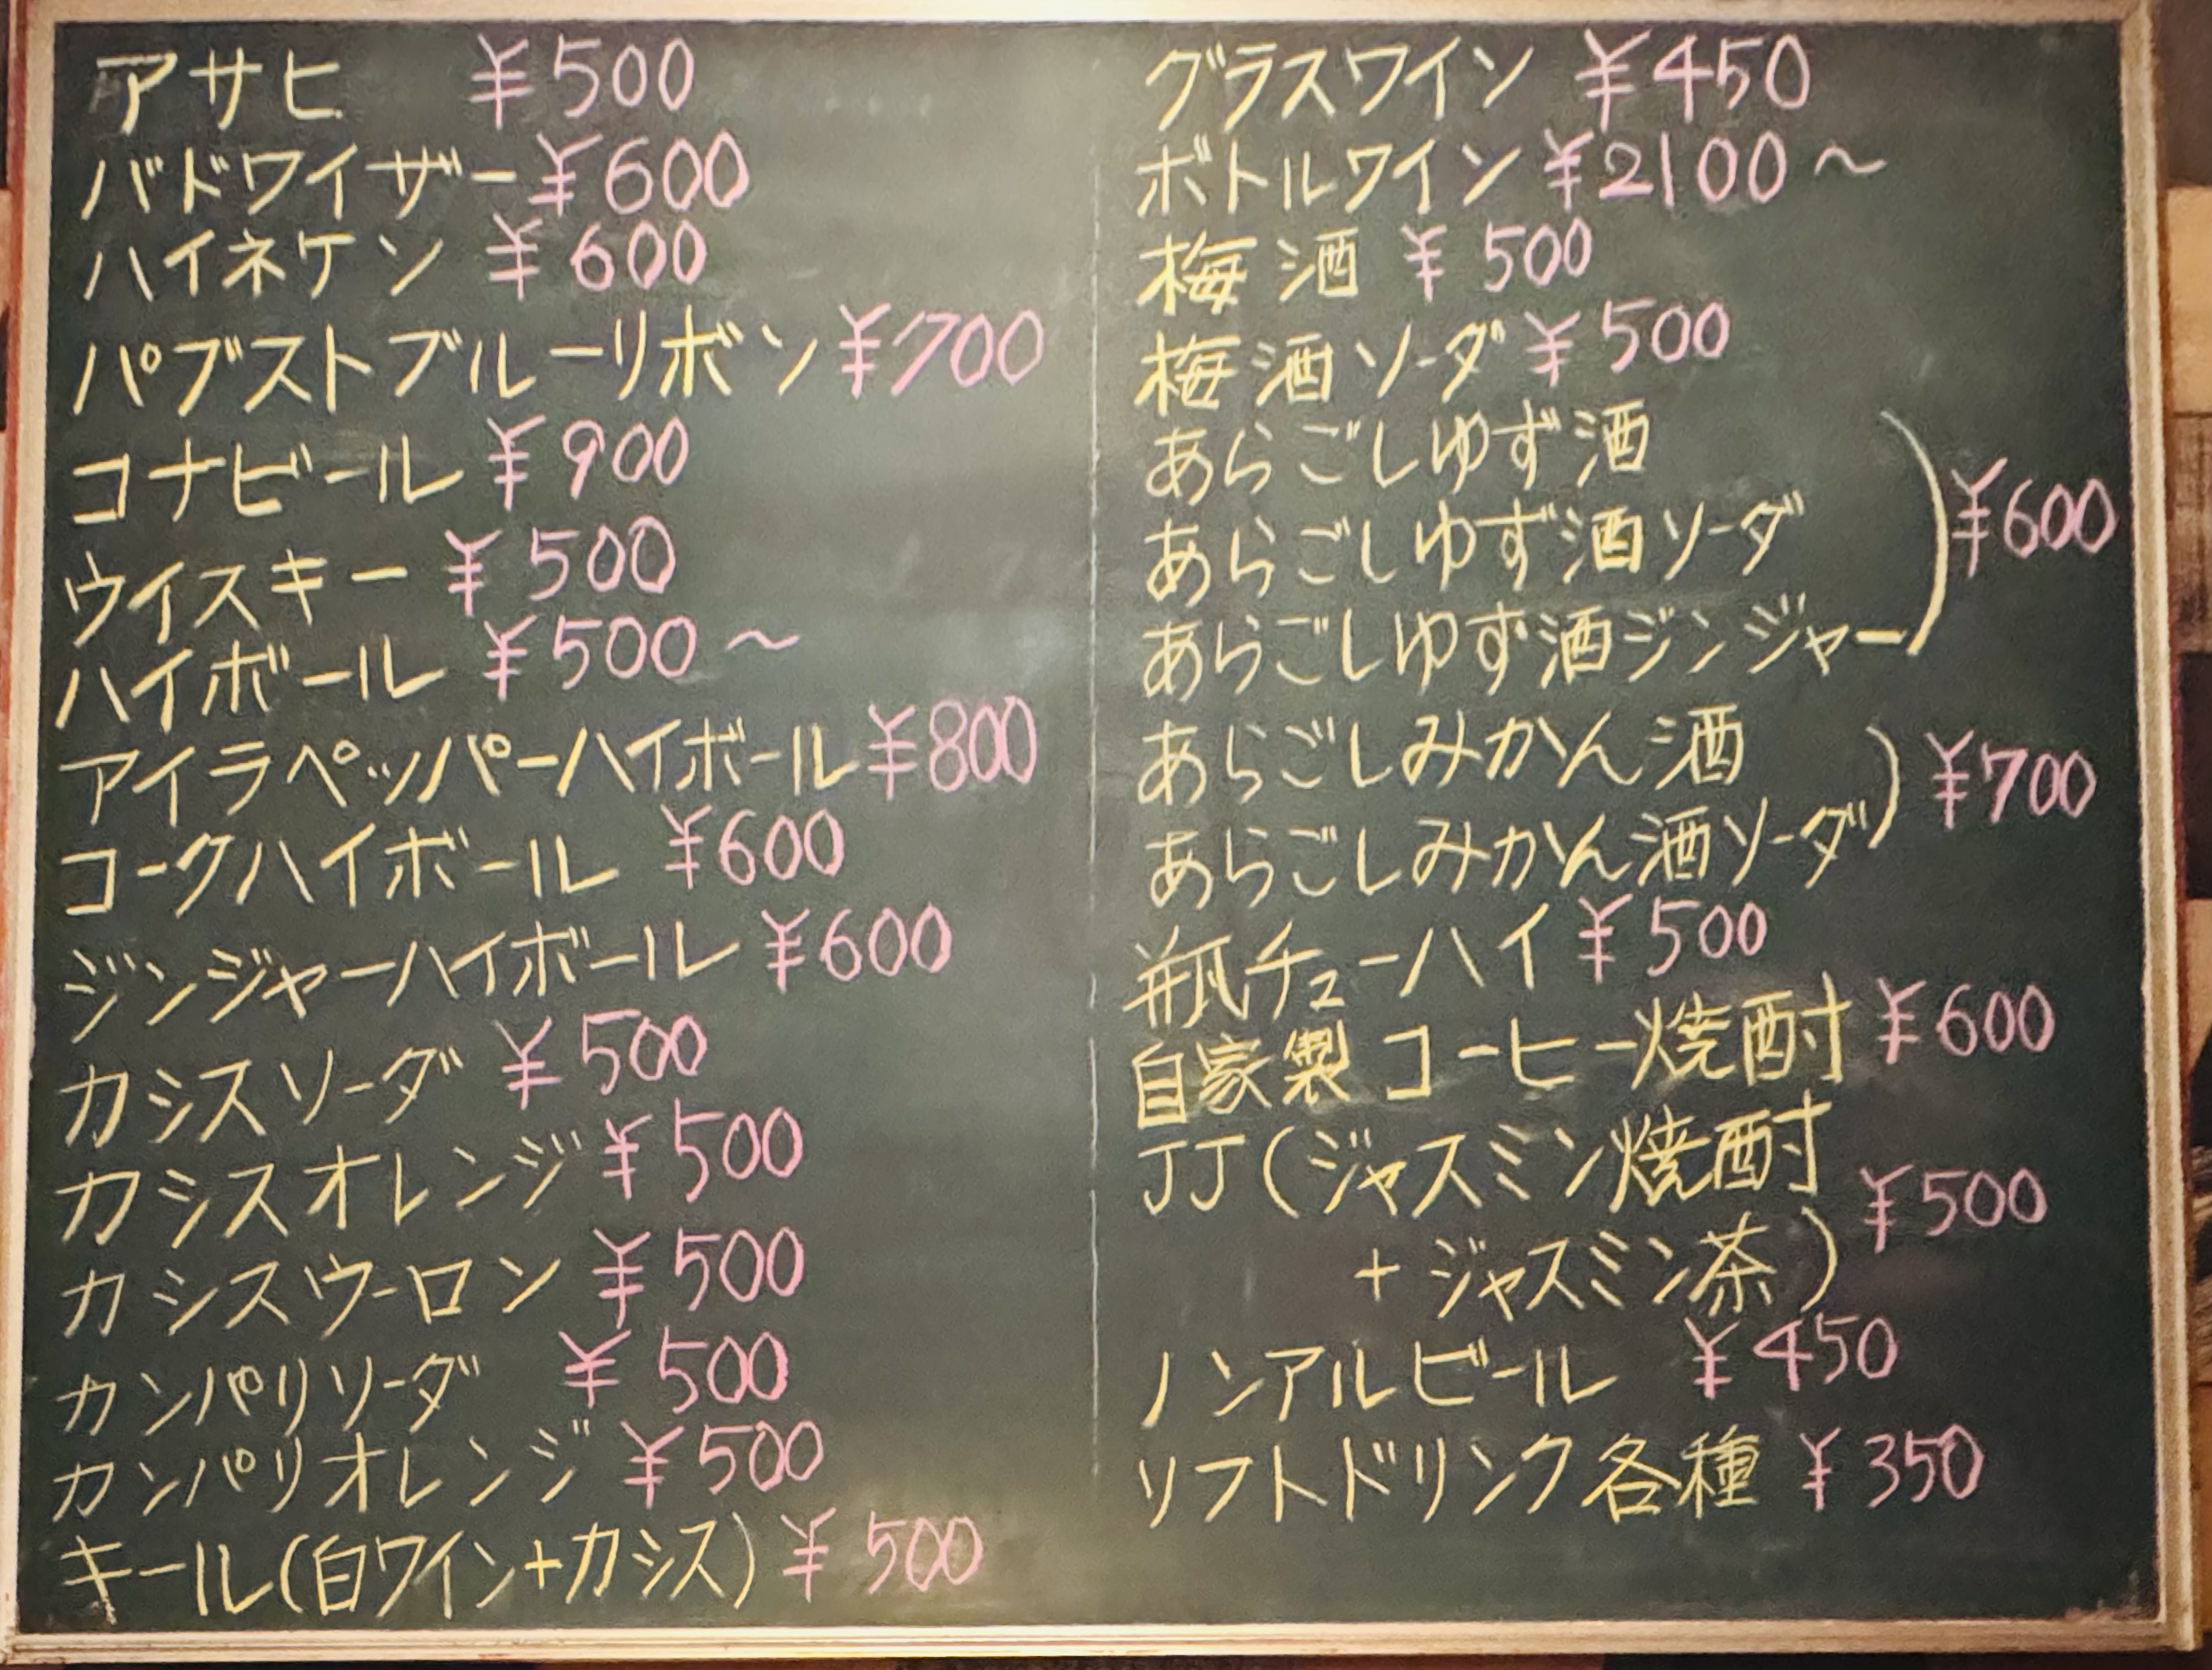 アサヒ ¥500
バドワイザー ¥600
ハイネケン ¥600
パブストブルーリボン ¥700
コナビール ¥900
ウイスキー ¥500
ハイボール ¥500～
アイラペッパーハイボール ¥800
コークハイボール ¥600
ジンジャーハイボール ¥600
カシスソーダ ¥500
カシスオレンジ ¥500
カシスウーロン ¥500
カンパリソーダ ¥500
カンパリオレンジ ¥500
キール(白ワイン+カシス) ¥500
グラスワイン ¥450
ボトルワイン ¥2100～
梅酒 ¥500
梅酒ソーダ ¥500
あらごしゆず酒
あらごしゆず酒ソーダ ) ¥600
あらごしゆず酒ジンジャー
あらごしみかん酒 ) ¥700
あらごしみかん酒ソーダ
瓶チューハイ ¥500
自家製コーヒー焼酎 ¥600
JJ(ジャスミン焼酎
+ジャスミン茶) ¥500
ノンアルビール ¥450
ソフトドリンク各種 ¥350